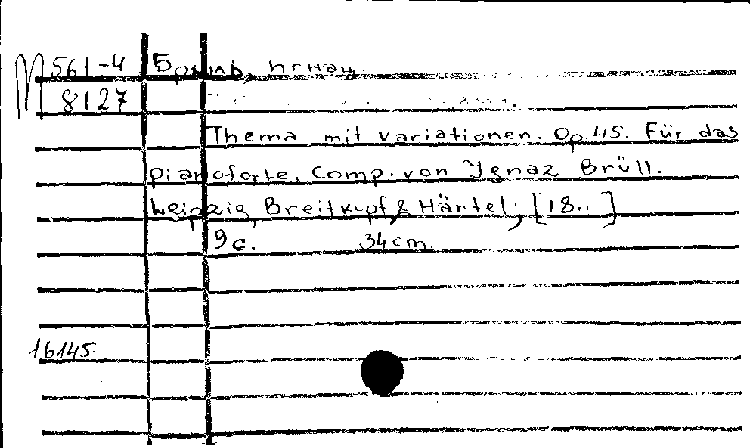 М 561-4 Брюль, Игнац
8127
Thema mit variationen. Op. 45. Für das
pianoforte, Comp. von Ignaz Brüll.
Leipzig, Breitkopf & Härtel, [18.. ]
9 c. 34 cm.
16145